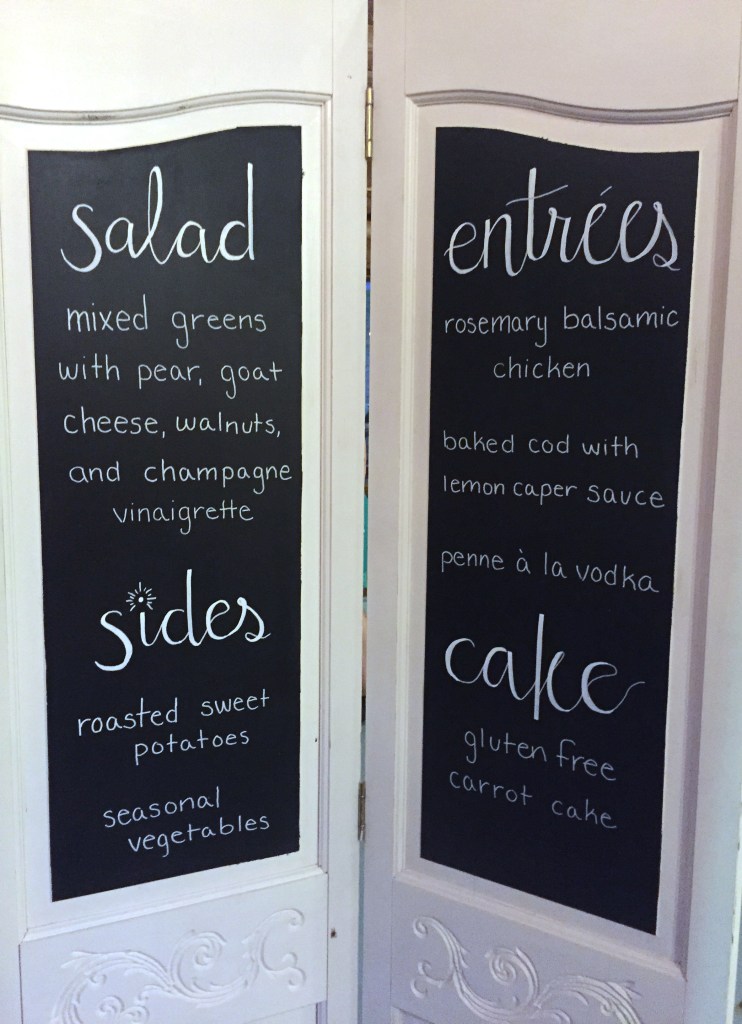 salad
mixed greens
with pear, goat
cheese, walnuts,
and champagne
vinaigrette
sides
roasted sweet
potatoes
seasonal
vegetables
entrées
rosemary balsamic
chicken
baked cod with
lemon caper sauce
penne à la vodka
cake
gluten free
carrot cake